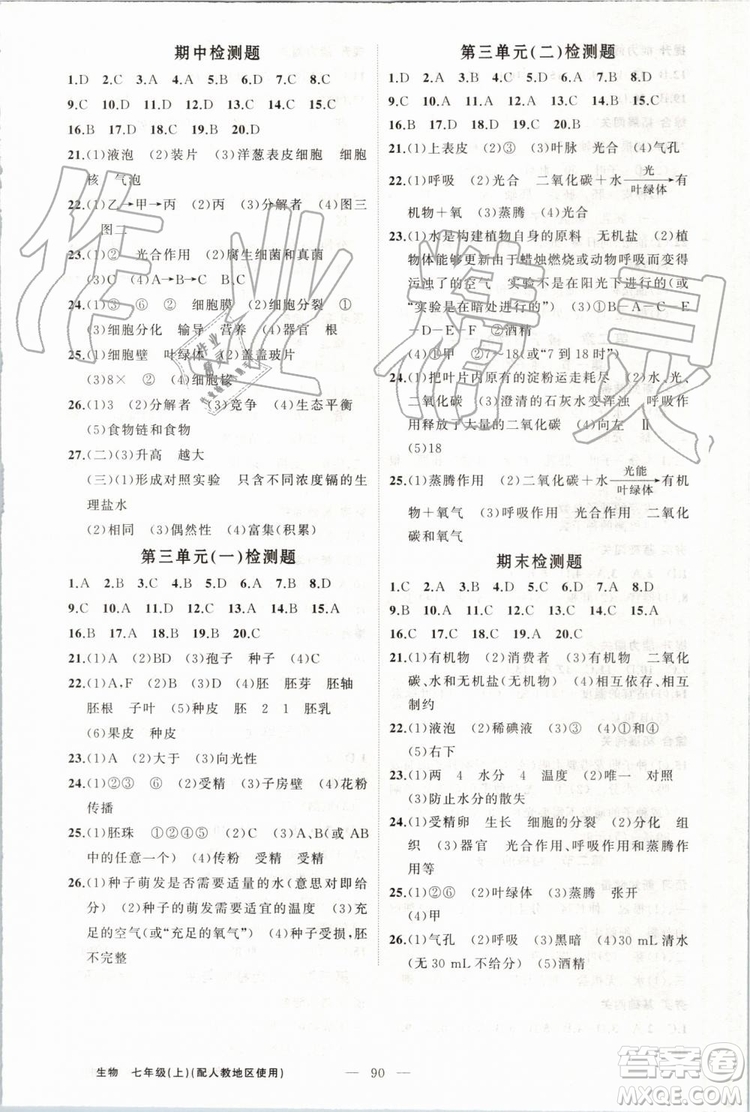 期中检测题
1.D 2.C 3.A 4.A 5.B 6.B 7.D 8.C
9.C 10.D 11.D 12.C 13.C 14.C 15.C
16.B 17.D 18.D 19.D 20.D
21.(1)液泡 (2)装片 (3)洋葱表皮细胞 细胞
核 气泡
22.(1)乙→甲→丙 (2)丙 (3)分解者 (4)图三
图二
23.(1)①② 光合作用 (2)腐生细菌和真菌
(3)C (4)A→B→C
24.(1)③ ⑥ (2)细胞膜 (3)细胞分裂 ①
(3)细胞分化 输导 营养 (4)器官 根
25.(1)细胞壁 叶绿体 (2)盖盖玻片
(3)8× ② (4)细胞核
26.(1)3 (2)分解者 (3)竞争 (4)生态平衡
(5)食物链和食物
27.(二)(3)升高 越大
(三)(1)形成对照实验 只含不同浓度镉的生
理盐水
(2)相同 (3)偶然性 (4)富集(积累)
第三单元(一)检测题
1.A 2.B 3.C 4.B 5.D 6.A 7.B 8.D
9.C 10.B 11.C 12.A 13.B 14.B 15.A
16.B 17.B 18.B 19.B 20.C
21.(1)A (2)BD (3)孢子 种子 (4)C
22.(1)A,F (2)E (3)F (4)胚 胚芽 胚轴
胚根 子叶 (5)种皮 胚 2 1 胚乳
(6)果皮 种皮
23.(1)A (2)大于 (3)向光性
24.(1)①②③ ⑥ (2)受精 (3)子房壁 (4)花粉
传播
25.(1)胚珠 ①→②→③ (2)D (3)A、B(或 AB
中的任意一个) (4)传粉 受精 受精
26.(1)种子萌发是否需要适量的水(意思对即给
分) (2)种子的萌发需要适宜的温度 (3)充
足的空气(或“充足的氧气”) (4)种子受损,胚
不完整
第三单元(二)检测题
1.D 2.A 3.C 4.A 5.B 6.B 7.B 8.D
9.C 10.D 11.C 12.D 13.B 14.C 15.C
16.B 17.D 18.B 19.C 20.D
21.(1)上表皮 (2)③ (3)叶脉 (4)气孔
22.(1)呼吸 (2)光合 二氧化碳+水 光→叶绿体 有
机物+氧 (3)蒸腾 (4)光合
23.(1)水是构建植物自身的原料 无机盐 (2)植
物体能够更新由于蜡烛燃烧或动物呼吸而变得
污浊了的空气 实验是在阳光下进行的(或
“实验是在暗处进行的”) (3)①B—A—C—E—
D—E—F ②酒精
(4)①甲 ②7~18(或“7 到 18 时”)
24.(1)把叶片内原有的淀粉运走耗尽 (2)水、光、
二氧化碳 (3)澄清的石灰水变浑浊 呼吸作
用释放了大量的二氧化碳 (4)向左 Ⅱ
(5)18
25.(1)蒸腾作用 (2)二氧化碳+水 光能→叶绿体 有机
物+氧气 (3)呼吸作用 (4)氧气 二氧化碳
和氧气
期末检测题
1.C 2.A 3.C 4.C 5.D 6.B 7.B 8.D
9.B 10.A 11.C 12.B 13.C 14.D 15.A
16.C 17.D 18.D 19.A 20.C
21.(1)有机物 (2)消费者 (3)有机物 二氧化
碳、水和无机盐(无机物) (4)相互依存、相互
制约
22.(1)液泡 (2)稀碘液 (3)③ (4)①→④→②
(5)右下
23.(1)两 4 水分 4 温度 (2)唯一 对照
(3)防止水分的散失
24.(1)受精卵 生长 细胞的分裂 (2)分化 组
织 (3)器官 光合作用、呼吸作用和蒸腾
作用等
25.(1)②⑥ (2)叶绿体 (3)蒸腾 张开
(4)甲
26.(1)气孔 (2)呼吸 (3)黑暗 (4)30 mL 清水
(无 30 mL 不给分) (5)酒精
生物 七年级(上)(配人教地区使用)
— 90 —
作业精灵